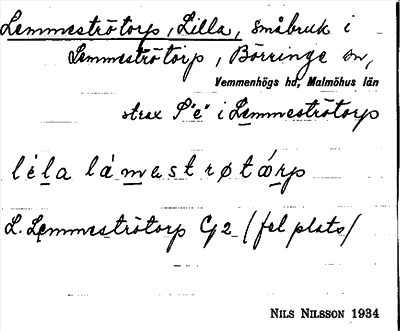 Lemmeströtorp, Lilla, småbruk i
Lemmeströtorp, Börringe sn,
Vemmenhögs hd, Malmöhus län
strax S "e" i Lemmeströtorp
léla lámastrøtárp
L. Lemmeströtorp G2 (fel plats)
NILS NILSSON 1934